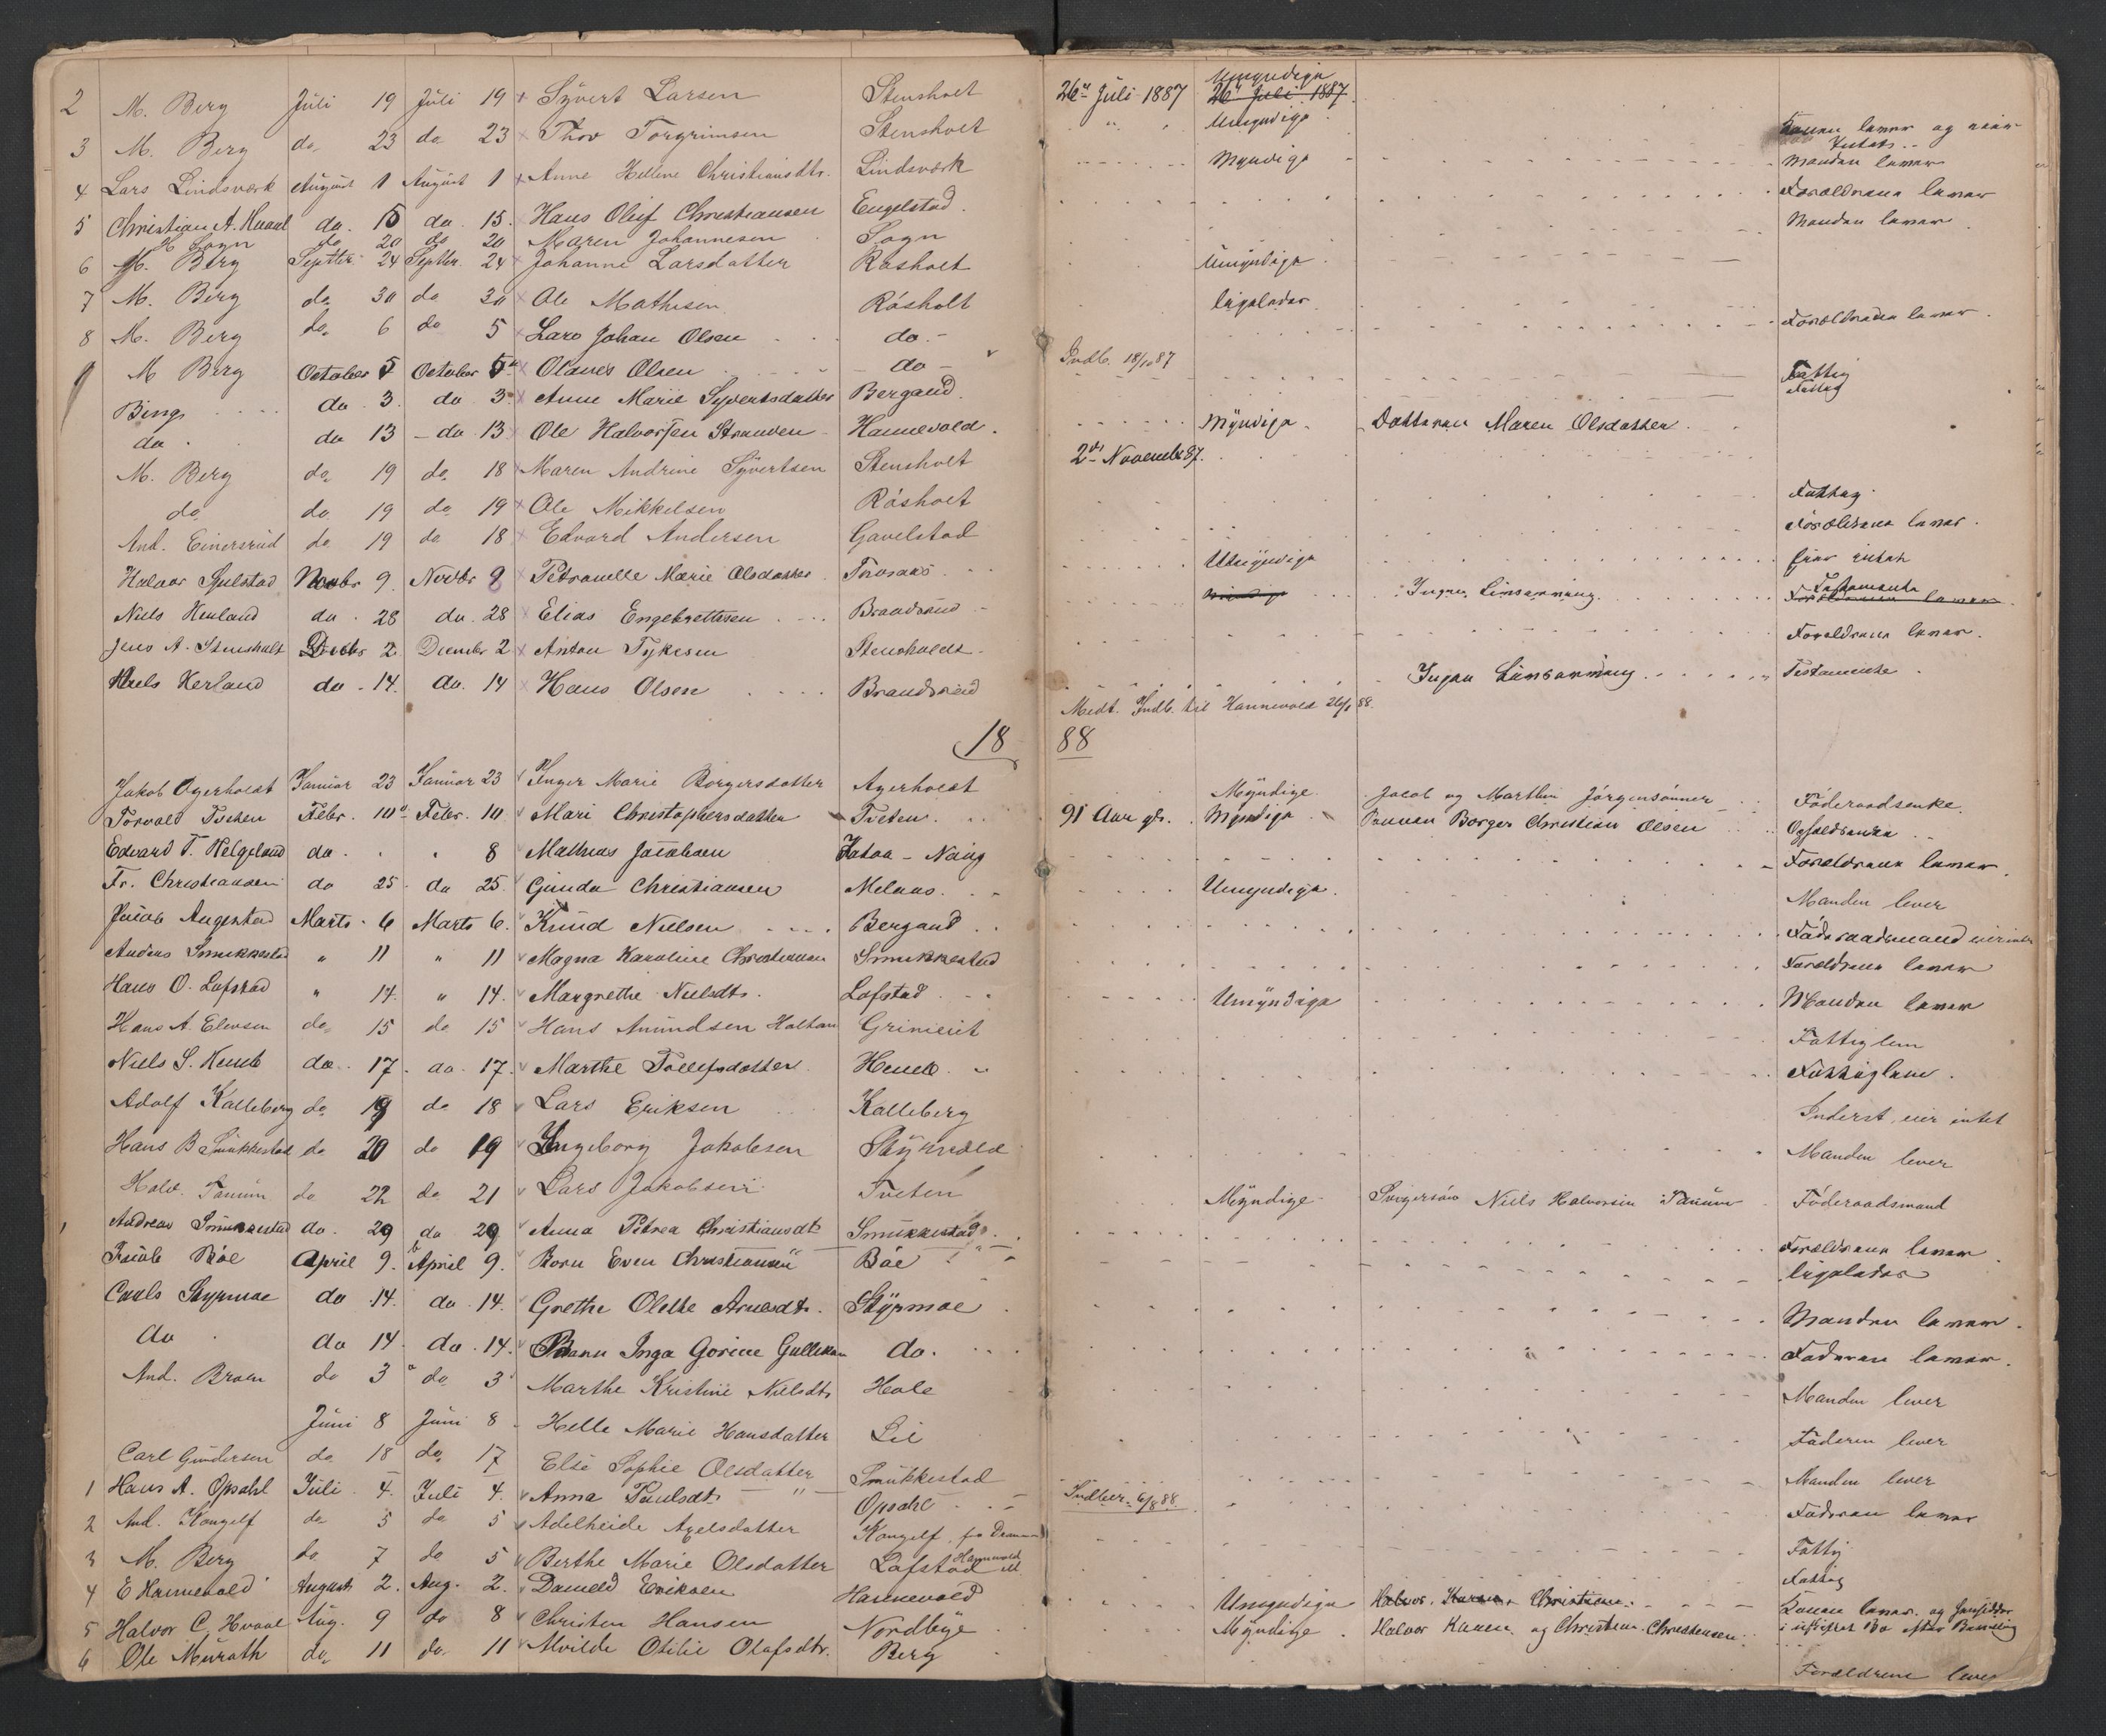 2 M. Berg Juli 19 Juli 19 Syvert Larsen Stensholt 26de Juli 1887 Umyndige 26de Juli 1887
3 M. Berg do 23 do 23 Thov Torgrimsen Stensholt Umyndige Konen lever og eier Intet
4 Lars Lindsværk August 1 August 1 Anne Helene Christiansdtr. Lindsværk Myndige Manden lever
5 Christian A. Hvaal do. 15 do. 15. Hans Oluf Christiansen Engelstad Forældrene lever
Sogn do 20 do 20 Maren Johannesen Sogn Manden lever
6 M. Berg Septbr 24 Septbr. 24 Johanne Larsdatter Røsholt Umyndige
7 M. Berg do 30 do 30 Ole Mathisen Røsholt ligeledes
8 M. Berg do 6 do 5 Lars Johan Olsen do. Forældrene lever
9 M Berg October 5 October 5 Olaves Olsen do Indb. 18/10 87
Berg do 3. do 3. Anne Marie Syvertsdatter Bergand Fattig
do do 13 do 13 Ole Halvorsen Hannevold. Myndige Datteren Maren Olsdatter
M. Berg do 19 do 18 Maren Andrine Syvertsen Stensholt 2den Novembr 87.
do do 19 do 19 Ole Mikkelsen Røsholt Fattig
And. Einersrud do 19 do 18 Edvard Andersen Gavelstad Forældrene lever.
Halvor Novbr 9. Novbr 9 Petronelle Marie Olsdatter Umyndige Eier intet
Niels do. 28 do. 28 Elias Engebrettsen Brandsrud Ingen Livsarving Testamente
Jens A. Stensholt Decbr 2. Decembr 2 Anton Stensholdt Forældrene lever.
Niels do. 14. do. 14 Hans Olsen Brandsrud Ingen Livsarving Testamente
Medt. Indb. til Hannevold 26/1 88.
1888
Jakob Agerholdt Januar 23 Januar 23 Inger Marie Borgersdatter Agerholdt Myndige Jacob og Marthin Jörgensönner Föderaadsenke
Torvald Tveten Febr. 10 Febr. 10. Mari Christophersdatter Tveten. 91 Aar gl. Myndige Sönnen Borger Christian Olsen
Edvard T. Helgeland do. 8 Mathias Jacobsen Forældrene lever.
Fr. Christiansen do 25. do 25. Gunda Christiansen Melaas. Umyndige. Manden lever
Jacob Angestad Marts 6 Marts 6. Knud Nielsen Bergand Föderaadsmand
Andreas Smukkestad " 11 " 11 Magna Karoline Christiansen Smukkestad Forældrene lever
Hans O. Lofstad " 14. " 14. Margrethe Nielsdtr. Lofstad Umyndige Manden lever
Hans A. Elevsen do 15 do 15 Hans Amundsen Holtan Fattiglem
Niels S. do. 17. do. 17. Marthe Tollefsdatter Fattiglem.
Adolf Kalleberg do 19 do 18 Lars Eriksen Kalleberg Inderst, eier intet
Hans B Smukkestad do 20 do 19 Ingeborg Jakobsen Manden lever
Halv. Tanum do 22 do 21 Lars Jakobsen Tveten Myndige Svigersön Niels Halvorsen Tanum Föderaadsmand
Andreas Smukkestad do. 29 do 29 Anna Petrea Christiansdtr Smukkestad Forældrene lever
Jacob Böe April 9. April 9. Barn Even Christiansen Böe ligeledes
Carls Styrmoe do 14. do. 14. Grethe Olethe Arnesdtr. Styrmoe Manden lever.
do do 14 do. 14. Barn Inga Gorine Gulliksen do. Faderen lever.
And. Braen do 3 do 3 Marthe Kristine Nielsdtr Hole Manden lever
Juni 8 Juni 8 Helle Marie Hansdatter Lie Faderen lever
Carl Gundersen do 18 do. 17 Else Sophie Olsdatter Smukkestad Manden lever
1 Hans A. Opsahl Juli 4. Juli 4. Anna Paulsdtr Opsahl Indber. 6/8 88. Faderen lever
2 And. Kongelf do 5 do 5 Adelheide Axelsdatter Kongelf Fattig
3 M. Berg do 7 do 5 Berthe Marie Olsdatter Lofstad Hannevold Fattig
4 E Hannevold August 2. Aug. 2. Daniel Eriksen Hannevold Umyndige Halvor, Karen, Christian.
5 Halvor C. Hvaal Aug. 9 do 8 Christen Hansen Nordbye Myndige Halvor Karen og Christian Christensen Konen lever. og hensidder i uskiftet Bo efter Bevilling
6 Ole Muråth do. 11 do. 11 Alvilde Otilie Olafsdtr. Berg Forældrene lever